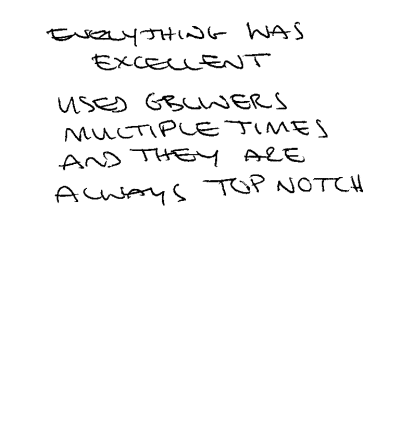 EVERYTHING WAS
EXCELLENT
USED
MULTIPLE TIMES
AND THEY ARE
ALWAYS TOP NOTCH